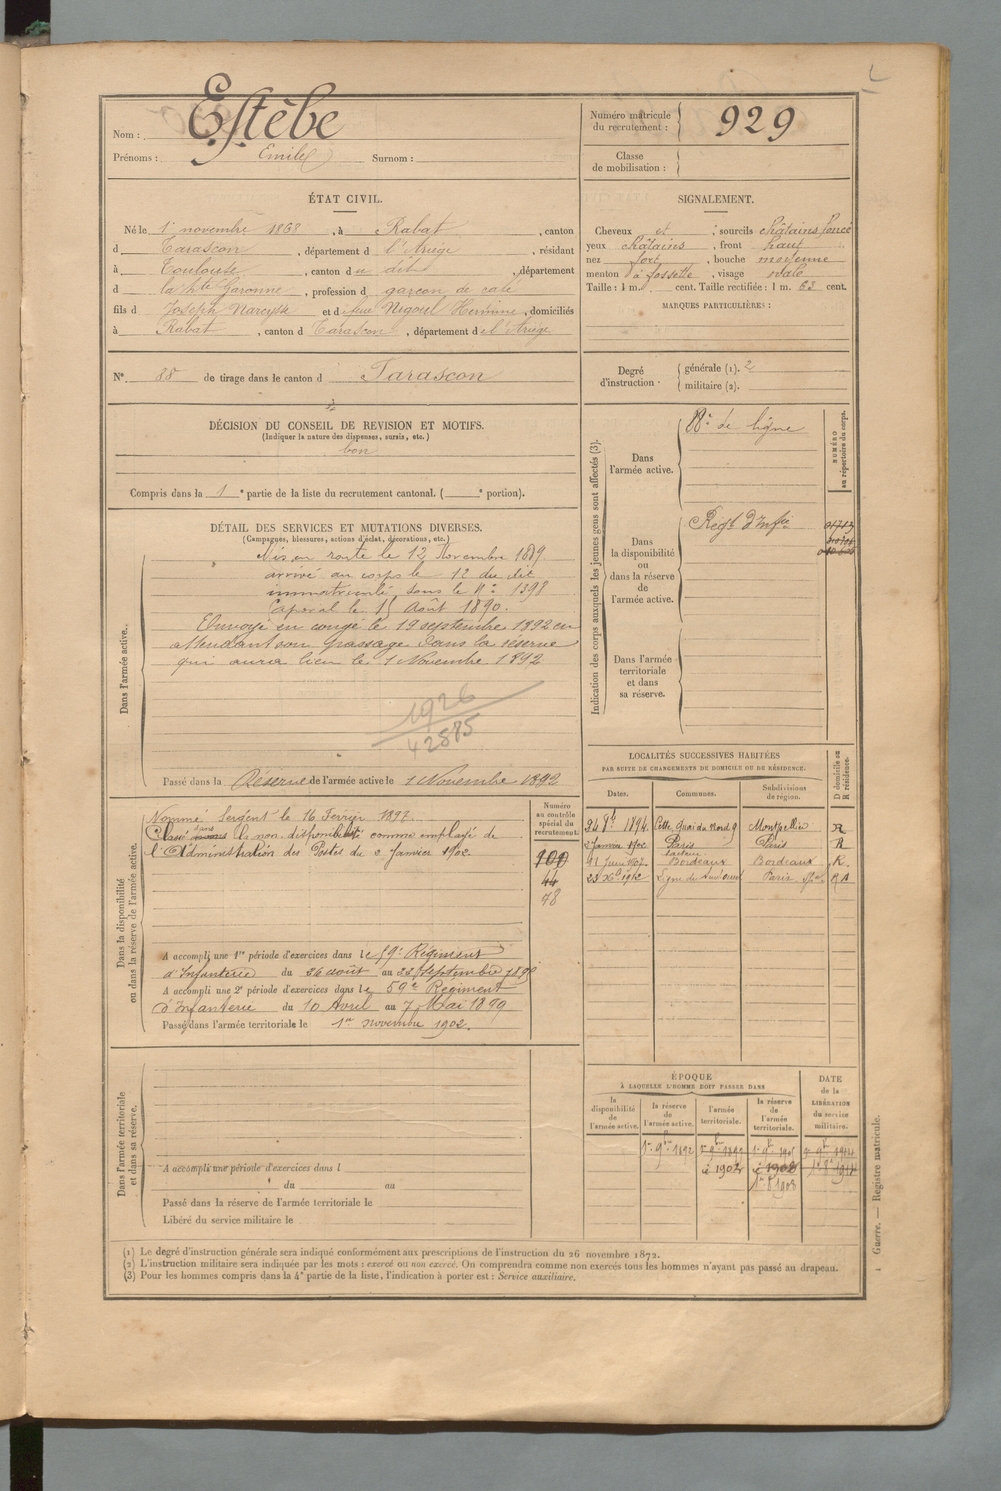 Nom : Estèbe
Prénoms : Emile Surnom :
Numéro matricule du recrutement : 929
Classe de mobilisation :
ÉTAT CIVIL.
Né le 1er novembre 1868, à Rabat, canton
d Tarascon, département d l'Ariège, résidant
à Toulouse, canton du dit, département
d la Hte Garonne, profession d garçon de café
fils d Joseph Narcisse et d feue Nigoul Hermine, domiciliés
à Rabat, canton d Tarascon, département d l'Ariège
SIGNALEMENT.
Cheveux et sourcils châtains foncé
yeux châtains, front haut
nez fort, bouche moyenne
menton à fossette, visage ovale
Taille : 1 m. cent. Taille rectifiée : 1 m. 63 cent.
MARQUES PARTICULIÈRES :
N° 88 de tirage dans le canton d Tarascon
Degré d'instruction : générale (1). 2
militaire (2).
DÉCISION DU CONSEIL DE REVISION ET MOTIFS.
(Indiquer la nature des dispenses, sursis, etc.)
bon
Compris dans la 1e partie de la liste du recrutement cantonal. ( e portion).
DÉTAIL DES SERVICES ET MUTATIONS DIVERSES.
(Campagnes, blessures, actions d'éclat, décorations, etc.)
Dans l'armée active.
Mis en route le 12 Novembre 1889
arrivé au corps le 12 du dit
immatriculé sous le N° 1398
Caporal le 15 Août 1890.
Envoyé en congé le 19 septembre 1892 en
attendant son passage dans la réserve
qui aura lieu le 1 Novembre 1892
1926
42875
Passé dans la Réserve de l'armée active le 1 Novembre 1892
Indication des corps auxquels les jeunes gens sont affectés (3).
NUMÉRO au répertoire du corps.
Dans l'armée active.
de ligne
Dans la disponibilité ou dans la réserve de l'armée active.
Régt d'Infie
Dans l'armée territoriale et dans sa réserve.
LOCALITÉS SUCCESSIVES HABITÉES
PAR SUITE DE CHANGEMENTS DE DOMICILE OU DE RÉSIDENCE.
Dates. Communes. Subdivisions de région. D domicile ou R résidence.
1894 Cette, Quai du Nord 9 Montpellier R
Janvier 1902 Paris Paris R
11 Juin 1907 Bordeaux Bordeaux R.
1912 Ligne du Sud Ouest Paris
Dans la disponibilité ou dans la réserve de l'armée active.
Numéro au contrôle spécial du recrutement.
100
44
78
Nommé Sergent le 16 Février 1892
Classé dans la non disponibilité comme employé de
l'Administration des Postes du 2 Janvier 1902.
A accompli une 1re période d'exercices dans le 59e Régiment
d'Infanterie du 26 août au 22 septembre
A accompli une 2e période d'exercices dans le 59e Régiment
d'Infanterie du 10 Avril au 7 Mai 1899
Passé dans l'armée territoriale le 1er novembre 1902.
ÉPOQUE
À LAQUELLE L'HOMME DOIT PASSER DANS
la disponibilité de l'armée active.
la réserve de l'armée active.
l'armée territoriale.
la réserve de l'armée territoriale.
DATE de la LIBÉRATION du service militaire.
1er 9bre 1892
1902
1908
Dans l'armée territoriale et dans sa réserve.
A accompli une période d'exercices dans l
du au
Passé dans la réserve de l'armée territoriale le
Libéré du service militaire le
(1) Le degré d'instruction générale sera indiqué conformément aux prescriptions de l'instruction du 26 novembre 1872.
(2) L'instruction militaire sera indiquée par les mots : exercé ou non exercé. On comprendra comme non exercés tous les hommes n'ayant pas passé au drapeau.
(3) Pour les hommes compris dans la 4e partie de la liste, l'indication à porter est : Service auxiliaire.
Guerre. — Registre matricule.